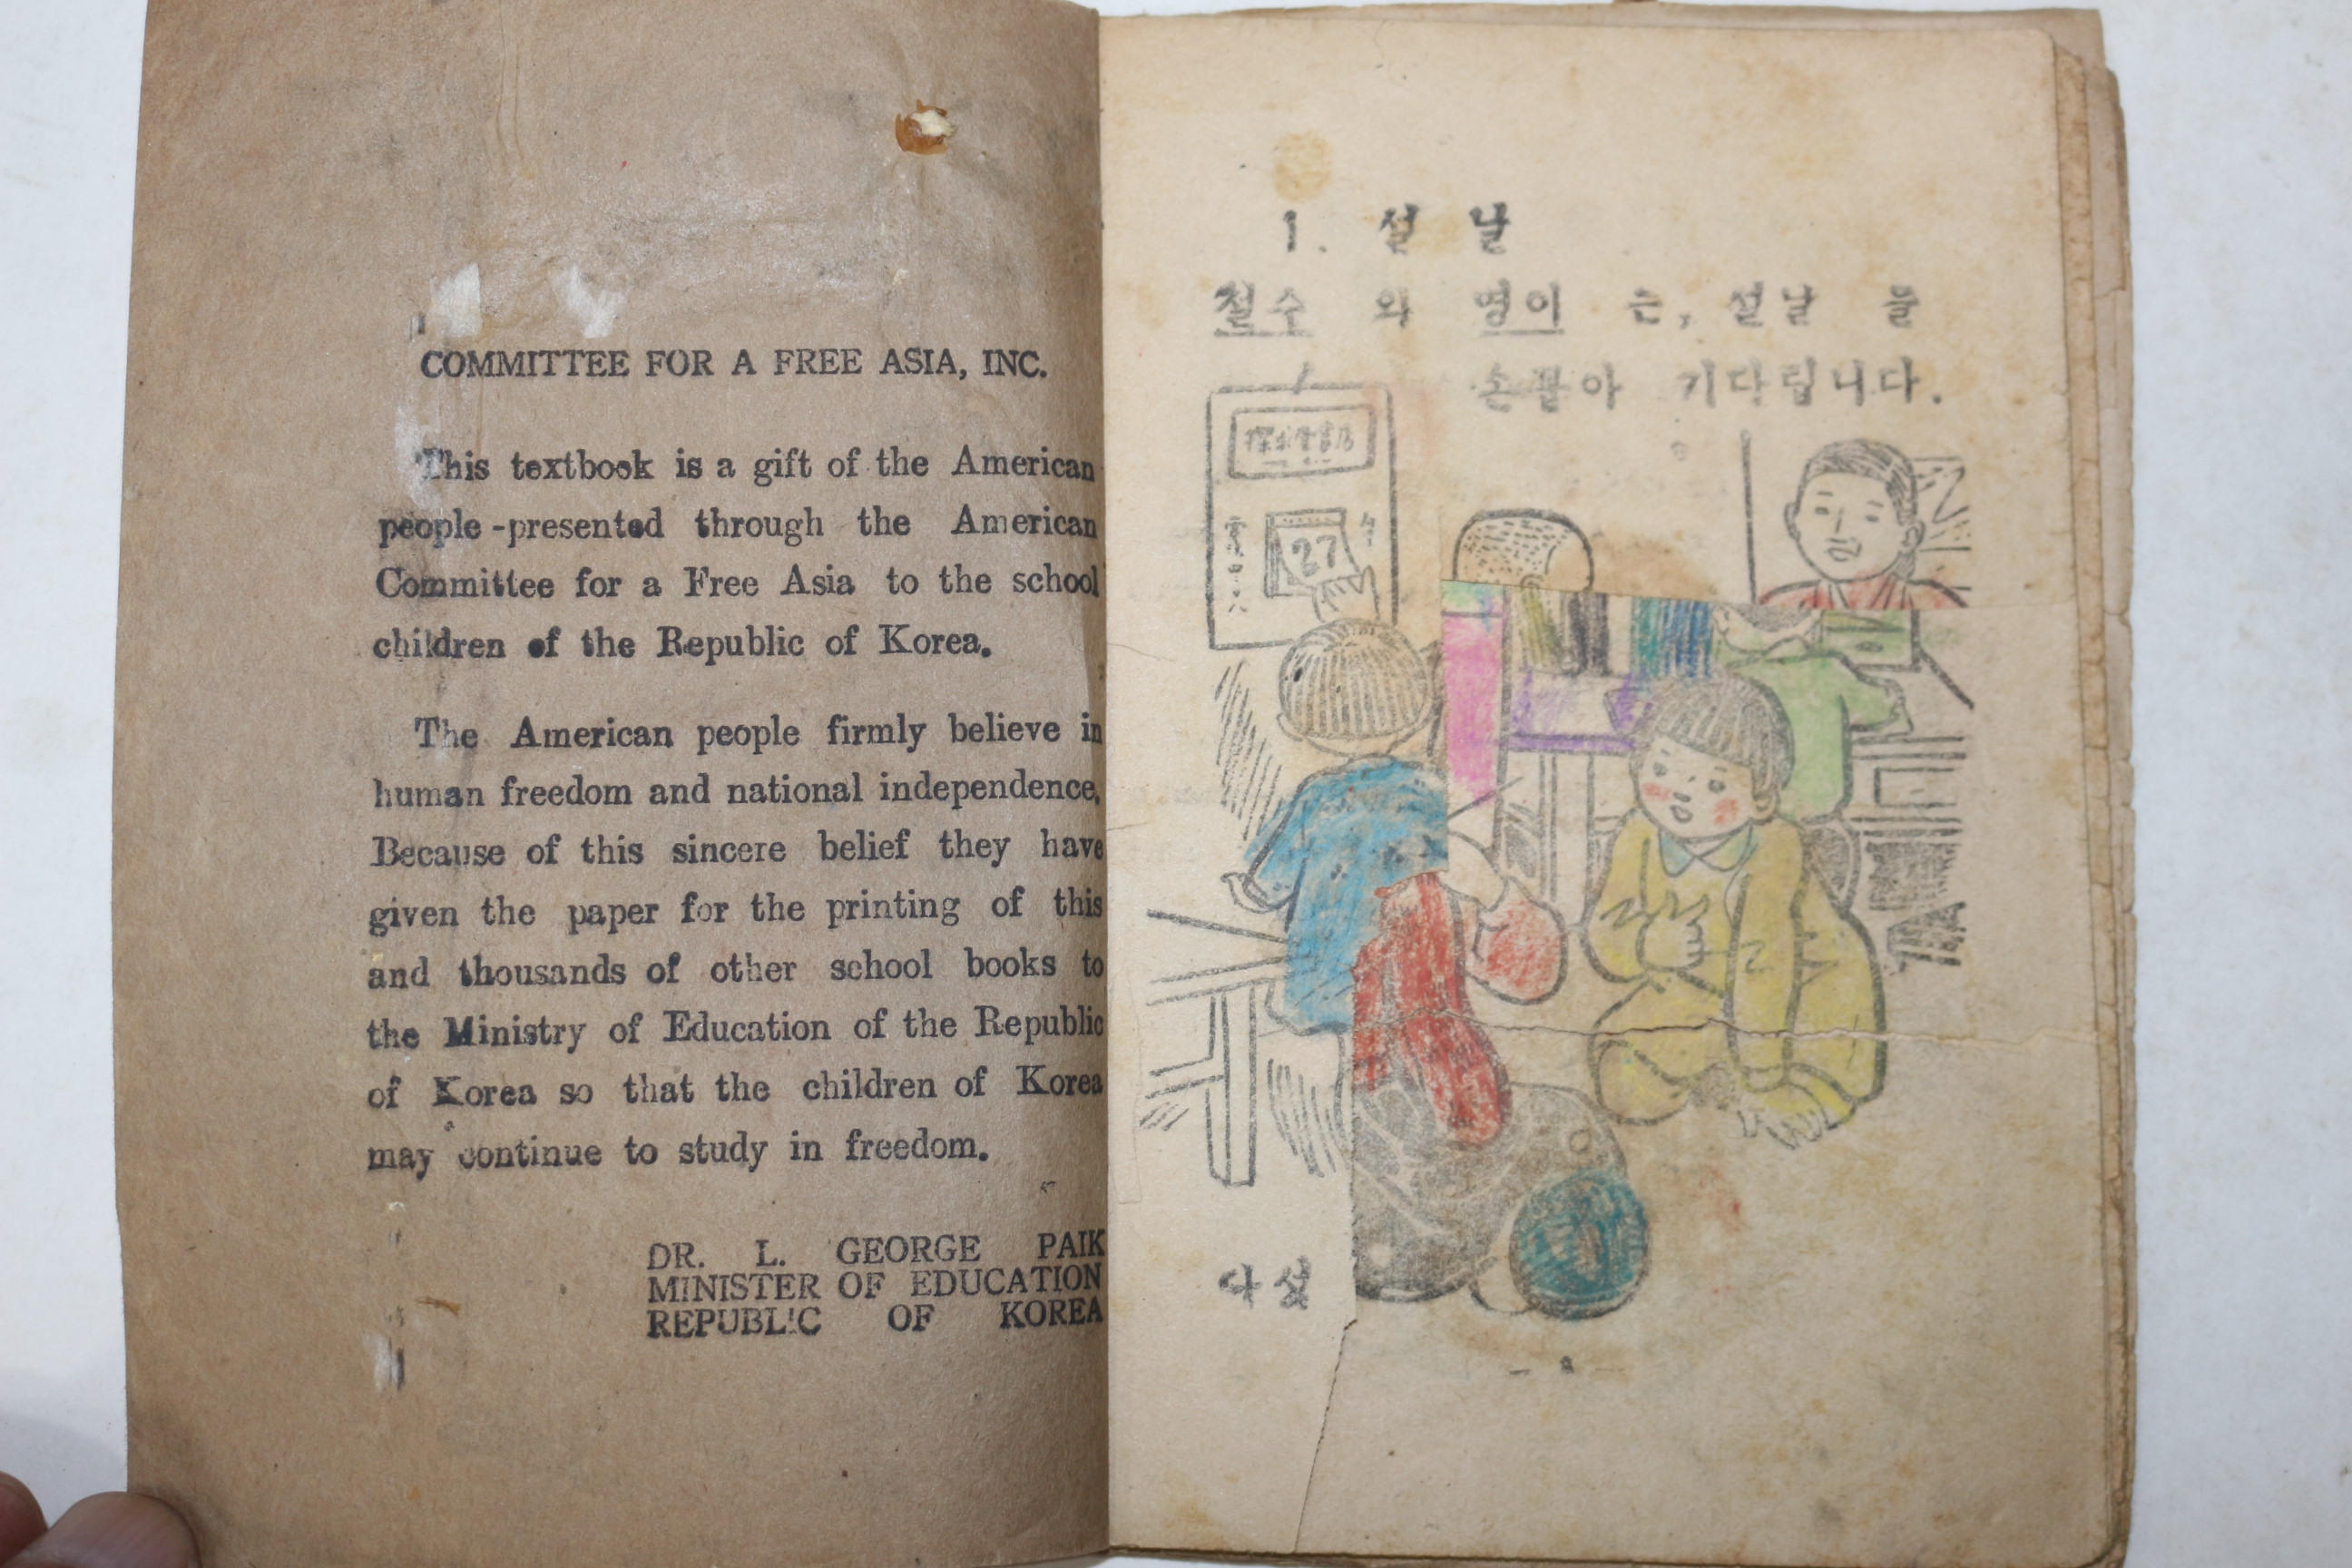 COMMITTEE FOR A FREE ASIA, INC.
This textbook is a gift of the American
people -presented through the American
Committee for a Free Asia to the school
children of the Republic of Korea.
The American people firmly believe in
human freedom and national independence.
Because of this sincere belief they have
given the paper for the printing of this
and thousands of other school books to
the Ministry of Education of the Republic
of Korea so that the children of Korea
may continue to study in freedom.
DR. L. GEORGE PAIK
MINISTER OF EDUCATION
REPUBLIC OF KOREA
1. 설 날
철수 와 영이 는, 설날 을
손꼽아 기다립니다.
27
다섯